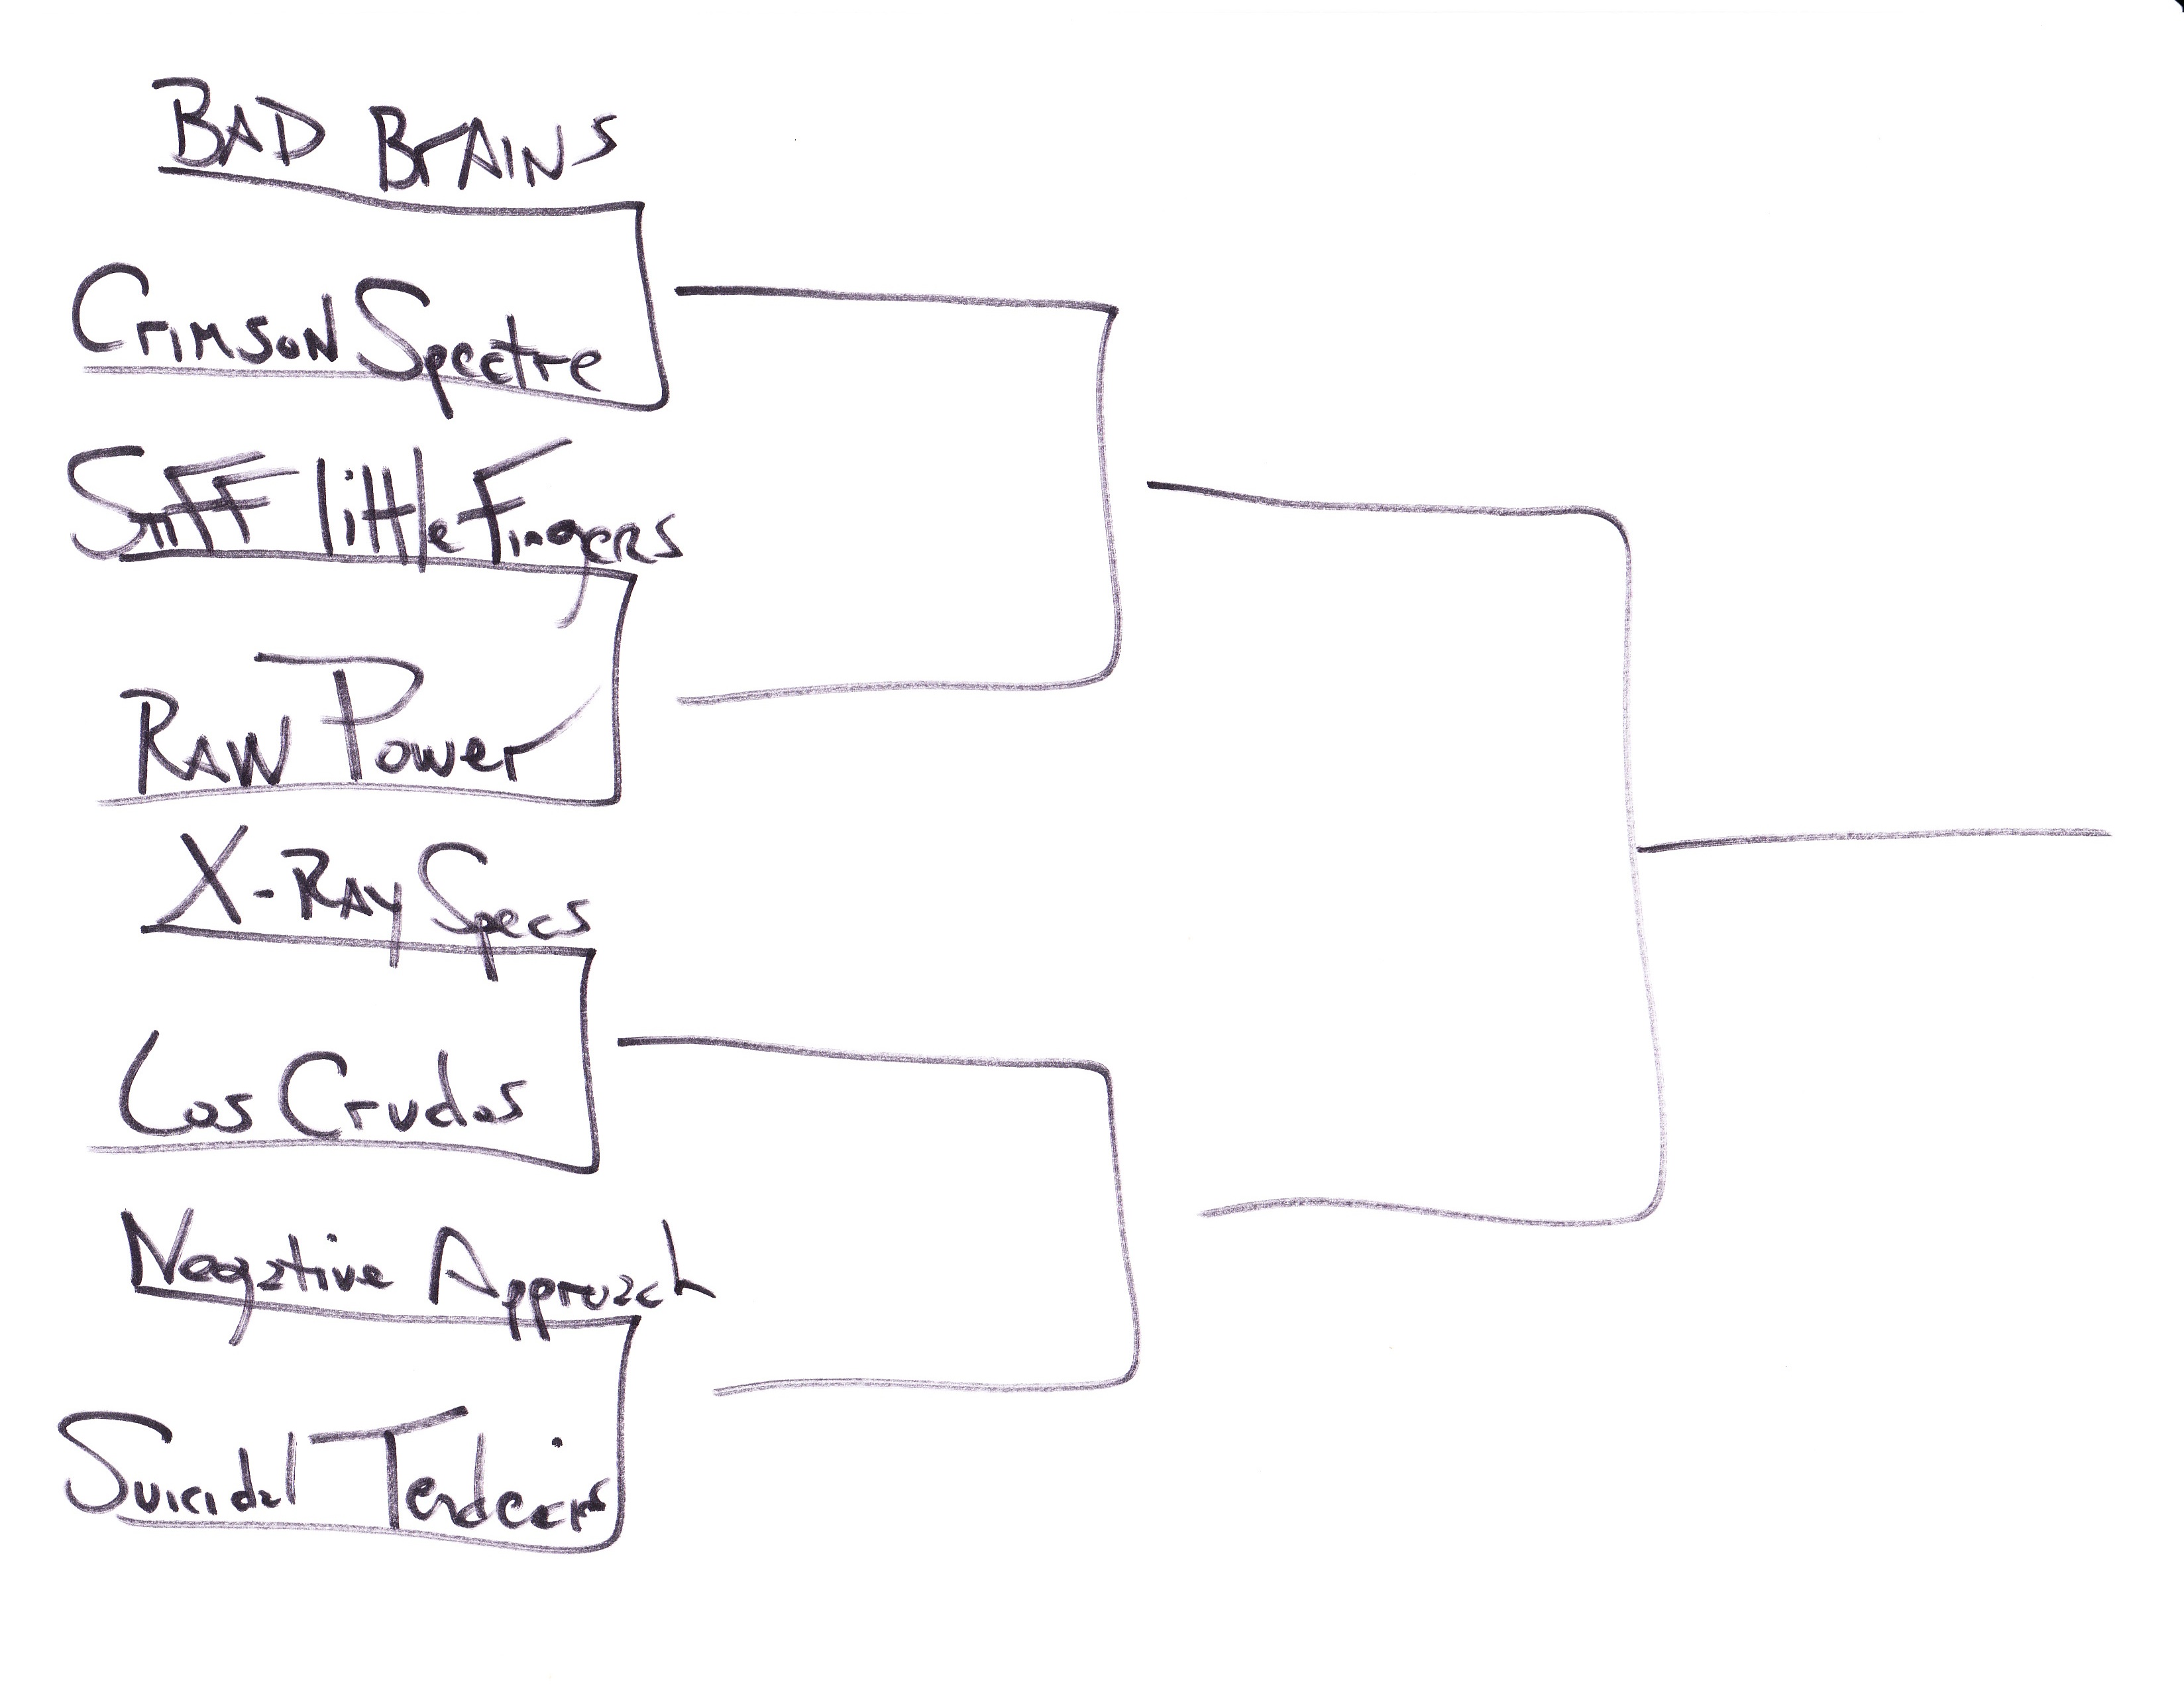 BAD BrAINS
CrIMSON Spectre
Stiff little Fingers
RAW Power
X-RAY Specs
Los Crudos
Negative Approach
Suicidal